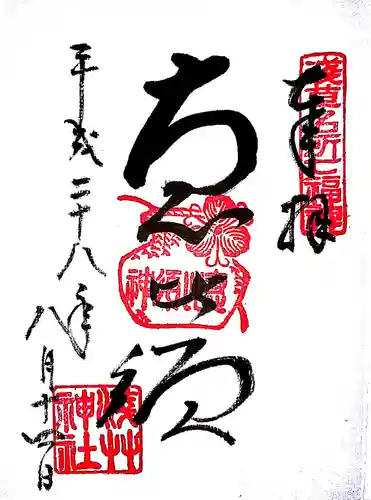 淺草名所七福神
奉拝
恵比須
恵比須神
平成二十八年
八月十四日
神社